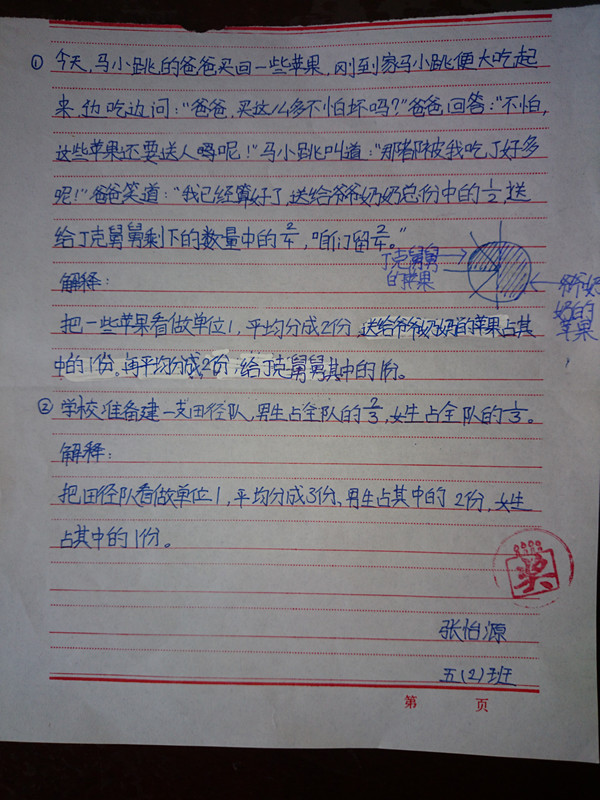 ① 今天,马小跳的爸爸买回一些苹果,刚到家马小跳便大吃起
来,边吃边问:“爸爸,买这么多不怕坏吗?”爸爸回答:“不怕,
这些苹果还要送人呢!”马小跳叫道:“那都被我吃了好多
呢!”爸爸笑道:“我已经算好了,送给爷爷奶奶总份中的1/2,送
给丁克舅舅剩下的数量中的2/4,咱们留2/4。”
丁克舅舅
的苹果
爷爷奶
奶的
苹果
解释:
把一些苹果看做单位1,平均分成2份,送给爷爷奶奶的苹果占其
中的1份。再平均分成2份,给丁克舅舅其中的1份。
② 学校准备建一支田径队,男生占全队的2/3,女生占全队的1/3。
解释:
把田径队看做单位1,平均分成3份、男生占其中的2份,女生
占其中的1份。
奖
张怡源
五(2)班
第 页